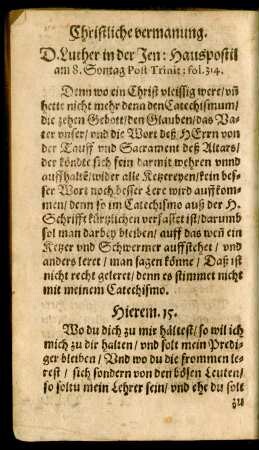 Christliche vermanung.
D. Luther in der Jen: Hauspostil
am 8. Sontag Post Trinit: fol. 314.
Denn wo ein Christ vleissig were/ vñ
hette nicht mehr denn den Catechismum/
die zehen Gebott/ den Glauben/ das Va-
ter vnser/ vnd die Wort deß HErrn von
der Tauff vnd Sacrament deß Altars/
der köndte sich fein darmit wehren vnnd
auffhaltē/ wider alle Ketzereyen/ kein bes-
ser Wort noch besser Lere wird auffkom-
men/ denn so im Catechismo auß der H.
Schrifft kürtzlichen verfasset ist/ darumb
sol man darbey bleiben/ auff das weñ ein
Ketzer vnd Schwermer auffstehet/ vnd
anders leret/ man sagen könne/ Daß ist
nicht recht geleret/ denn es stimmet nicht
mit meinem Catechismo.
Hierem. 15.
Wo du dich zu mir hältest/ so wil ich
mich zu dir halten/ vnd solt mein Predi-
ger bleiben/ Vnd wo du die frommen le-
rest/ sich sondern von den bösen Leuten/
so soltu mein Lehrer sein/ vnd ehe du solt
zu